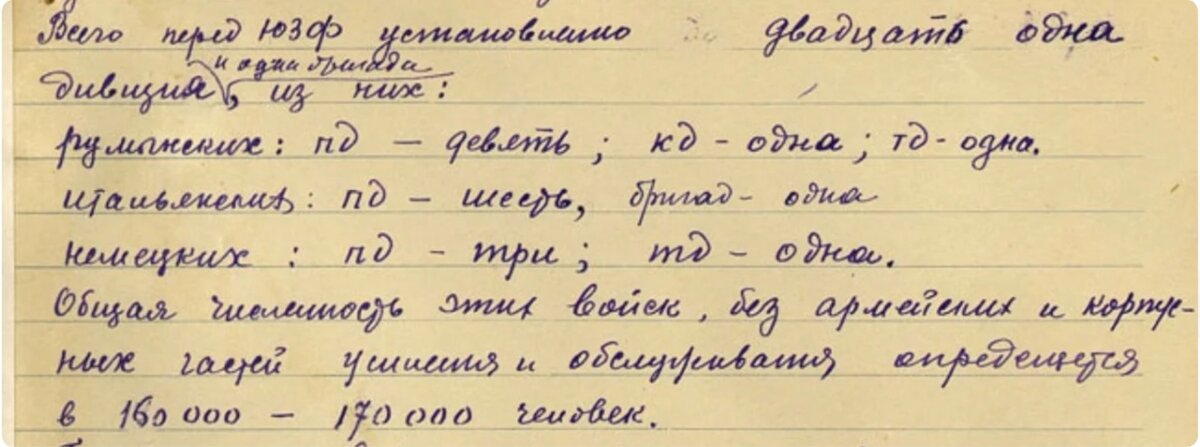 Всего перед ЮЗФ установлено двадцать одна
и одна бригада
дивизия, из них:
румынских: пд — девять; кд - одна; тд - одна.
итальянских: пд — шесть, бригад - одна
немецких: пд - три; тд - одна.
Общая численность этих войск, без армейских и корпус-
ных частей усиления и обслуживания определяется
в 160 000 — 170 000 человек.